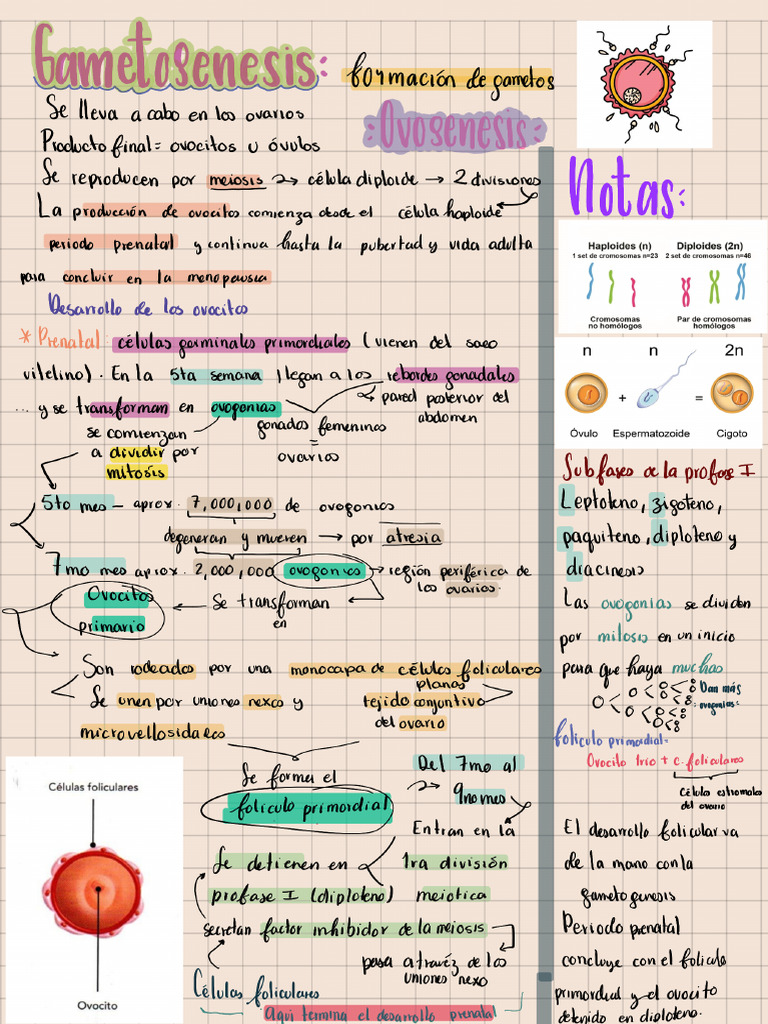 Gametogenesis: formación de gametos
Se lleva a cabo en los ovarios
:Ovogenesis:
Producto final = ovocitos u óvulos
Se reproducen por meiosis → célula diploide → 2 divisiones
La producción de ovocitos comienza desde el célula haploide
periodo prenatal y continua hasta la pubertad y vida adulta
para concluir en la menopausia
Desarrollo de los ovocitos
* Prenatal: células germinales primordiales (vienen del saco
vitelino). En la 5ta semana llegan a los rebordes gonadales
... y se transforman en ovogonias
pared posterior del
abdomen
se comienzan
a dividir por
mitosis
gonadas femeninas
=
ovarios
5to mes – aprox. 7,000,000 de ovogonias
degeneran y mueren → por atresia
7mo mes aprox. 2,000,000 ovogonias → región periférica de
los ovarios.
Ovocitos
primario
← Se transforman
en
Son rodeados por una monocapa de células foliculares
planas
Se unen por uniones nexo y
microvellosidades
tejido conjuntivo
del ovario
Se forma el
folículo primordial
Del 7mo al
9no mes
Entran en la
1ra división
meiotica
Se detienen en
profase I (diploteno)
secretan factor inhibidor de la meiosis
pasa a travéz de las
uniones nexo
Células foliculares
Aqui termina el desarrollo prenatal
Células foliculares
Ovocito
Notas:
Haploides (n) Diploides (2n)
1 set de cromosomas n=23 2 set de cromosomas n=46
Cromosomas
no homólogos
Par de cromosomas
homólogos
n n 2n
+ =
Óvulo Espermatozoide Cigoto
Subfases de la profase I
Leptoteno, zigoteno,
paquiteno, diploteno y
diacinesis
Las ovogonias se dividen
por mitosis en un inicio
para que haya muchas
Dan más
ovogonias:
folículo primordial=
Ovocito 1rio + c. foliculares
Células estromales
del ovario
El desarrollo folicular va
de la mano con la
gametogenesis
Periodo prenatal
concluye con el folículo
primordial y el ovocito
detenido en diploteno.